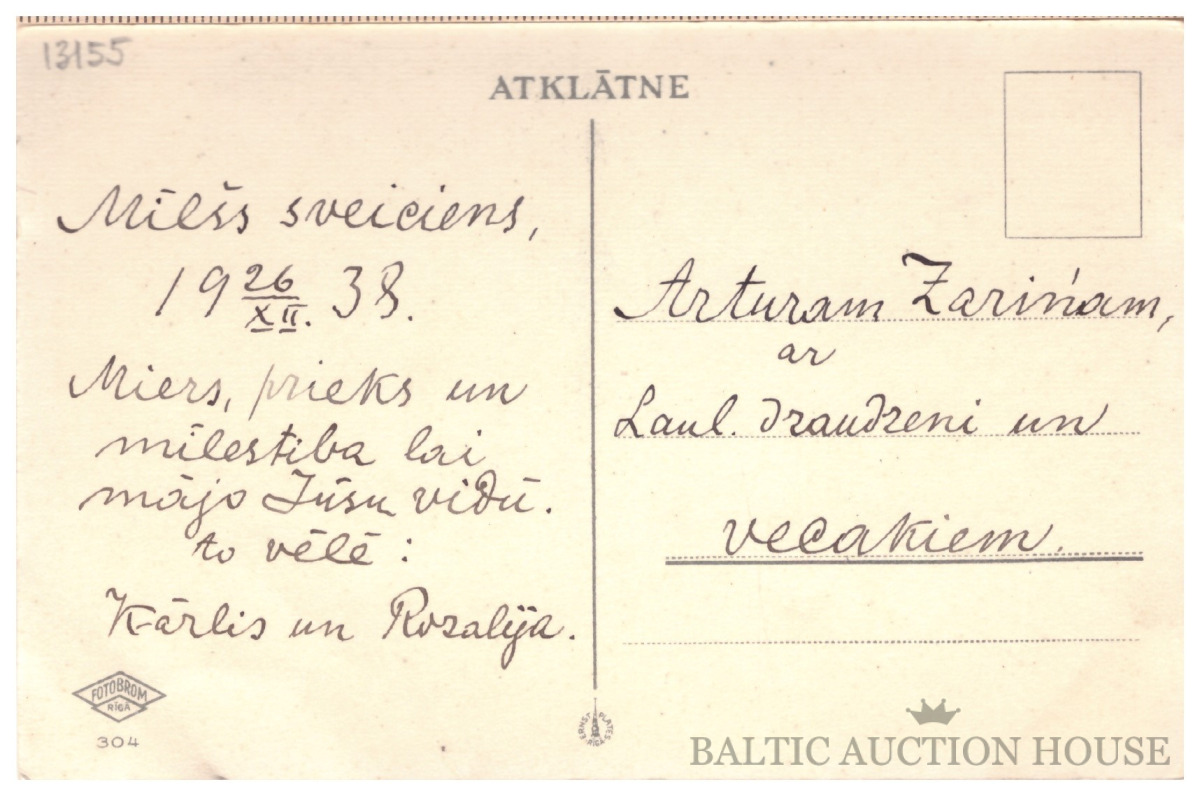 13155
ATKLĀTNE
Mīlšs sveiciens,
19 26/XII. 38.
Miers, prieks un
mīlestiba lai
mājo Jūsu vidū.
to vēlē:
Kārlis un Rozalija.
FOTOBROM
RĪGĀ
304
ERNST PLATES RĪGĀ
Arturam Zariņam,
ar
Laul. draudzeni un
vecakiem.
BALTIC AUCTION HOUSE